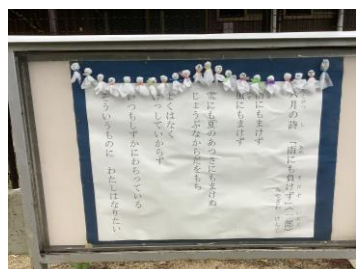 月の詩 「雨にも負けず」
みやざわ けんじ
にもまけず
にもまけず
雪にも夏のあつさにもまけぬ
じょうぶなからだをもち
よくはなく
っしていからず
つもしずかにわらっている
ういうものに わたしはなりたい